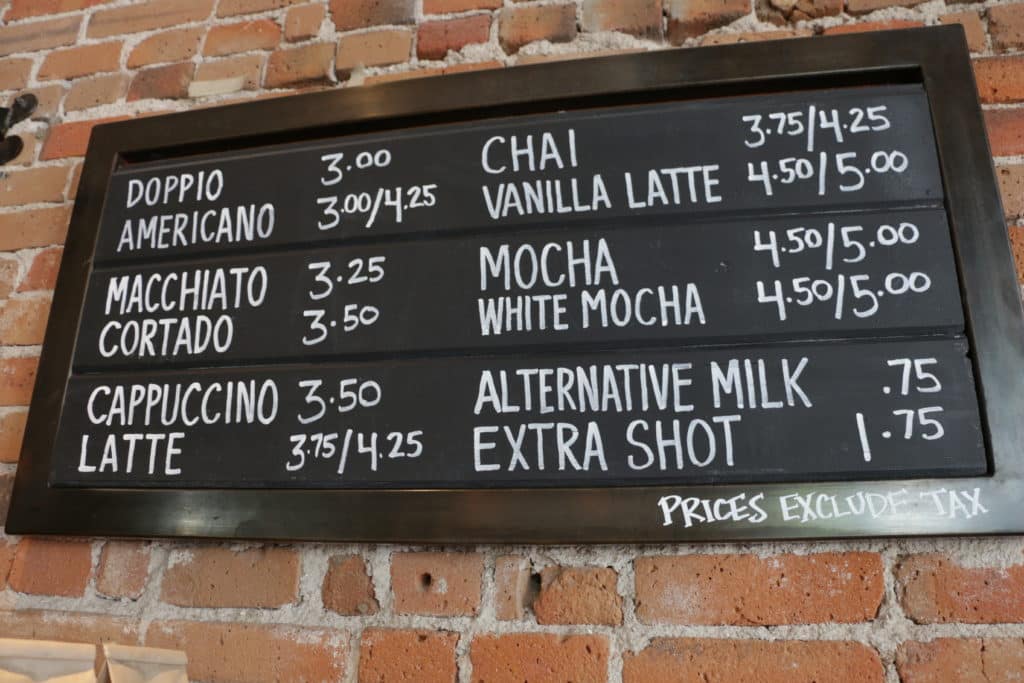 DOPPIO 3.00
AMERICANO 3.00/4.25
MACCHIATO 3.25
CORTADO 3.50
CAPPUCCINO 3.50
LATTE 3.75/4.25
CHAI 3.75/4.25
VANILLA LATTE 4.50/5.00
MOCHA 4.50/5.00
WHITE MOCHA 4.50/5.00
ALTERNATIVE MILK .75
EXTRA SHOT 1.75
PRICES EXCLUDE TAX